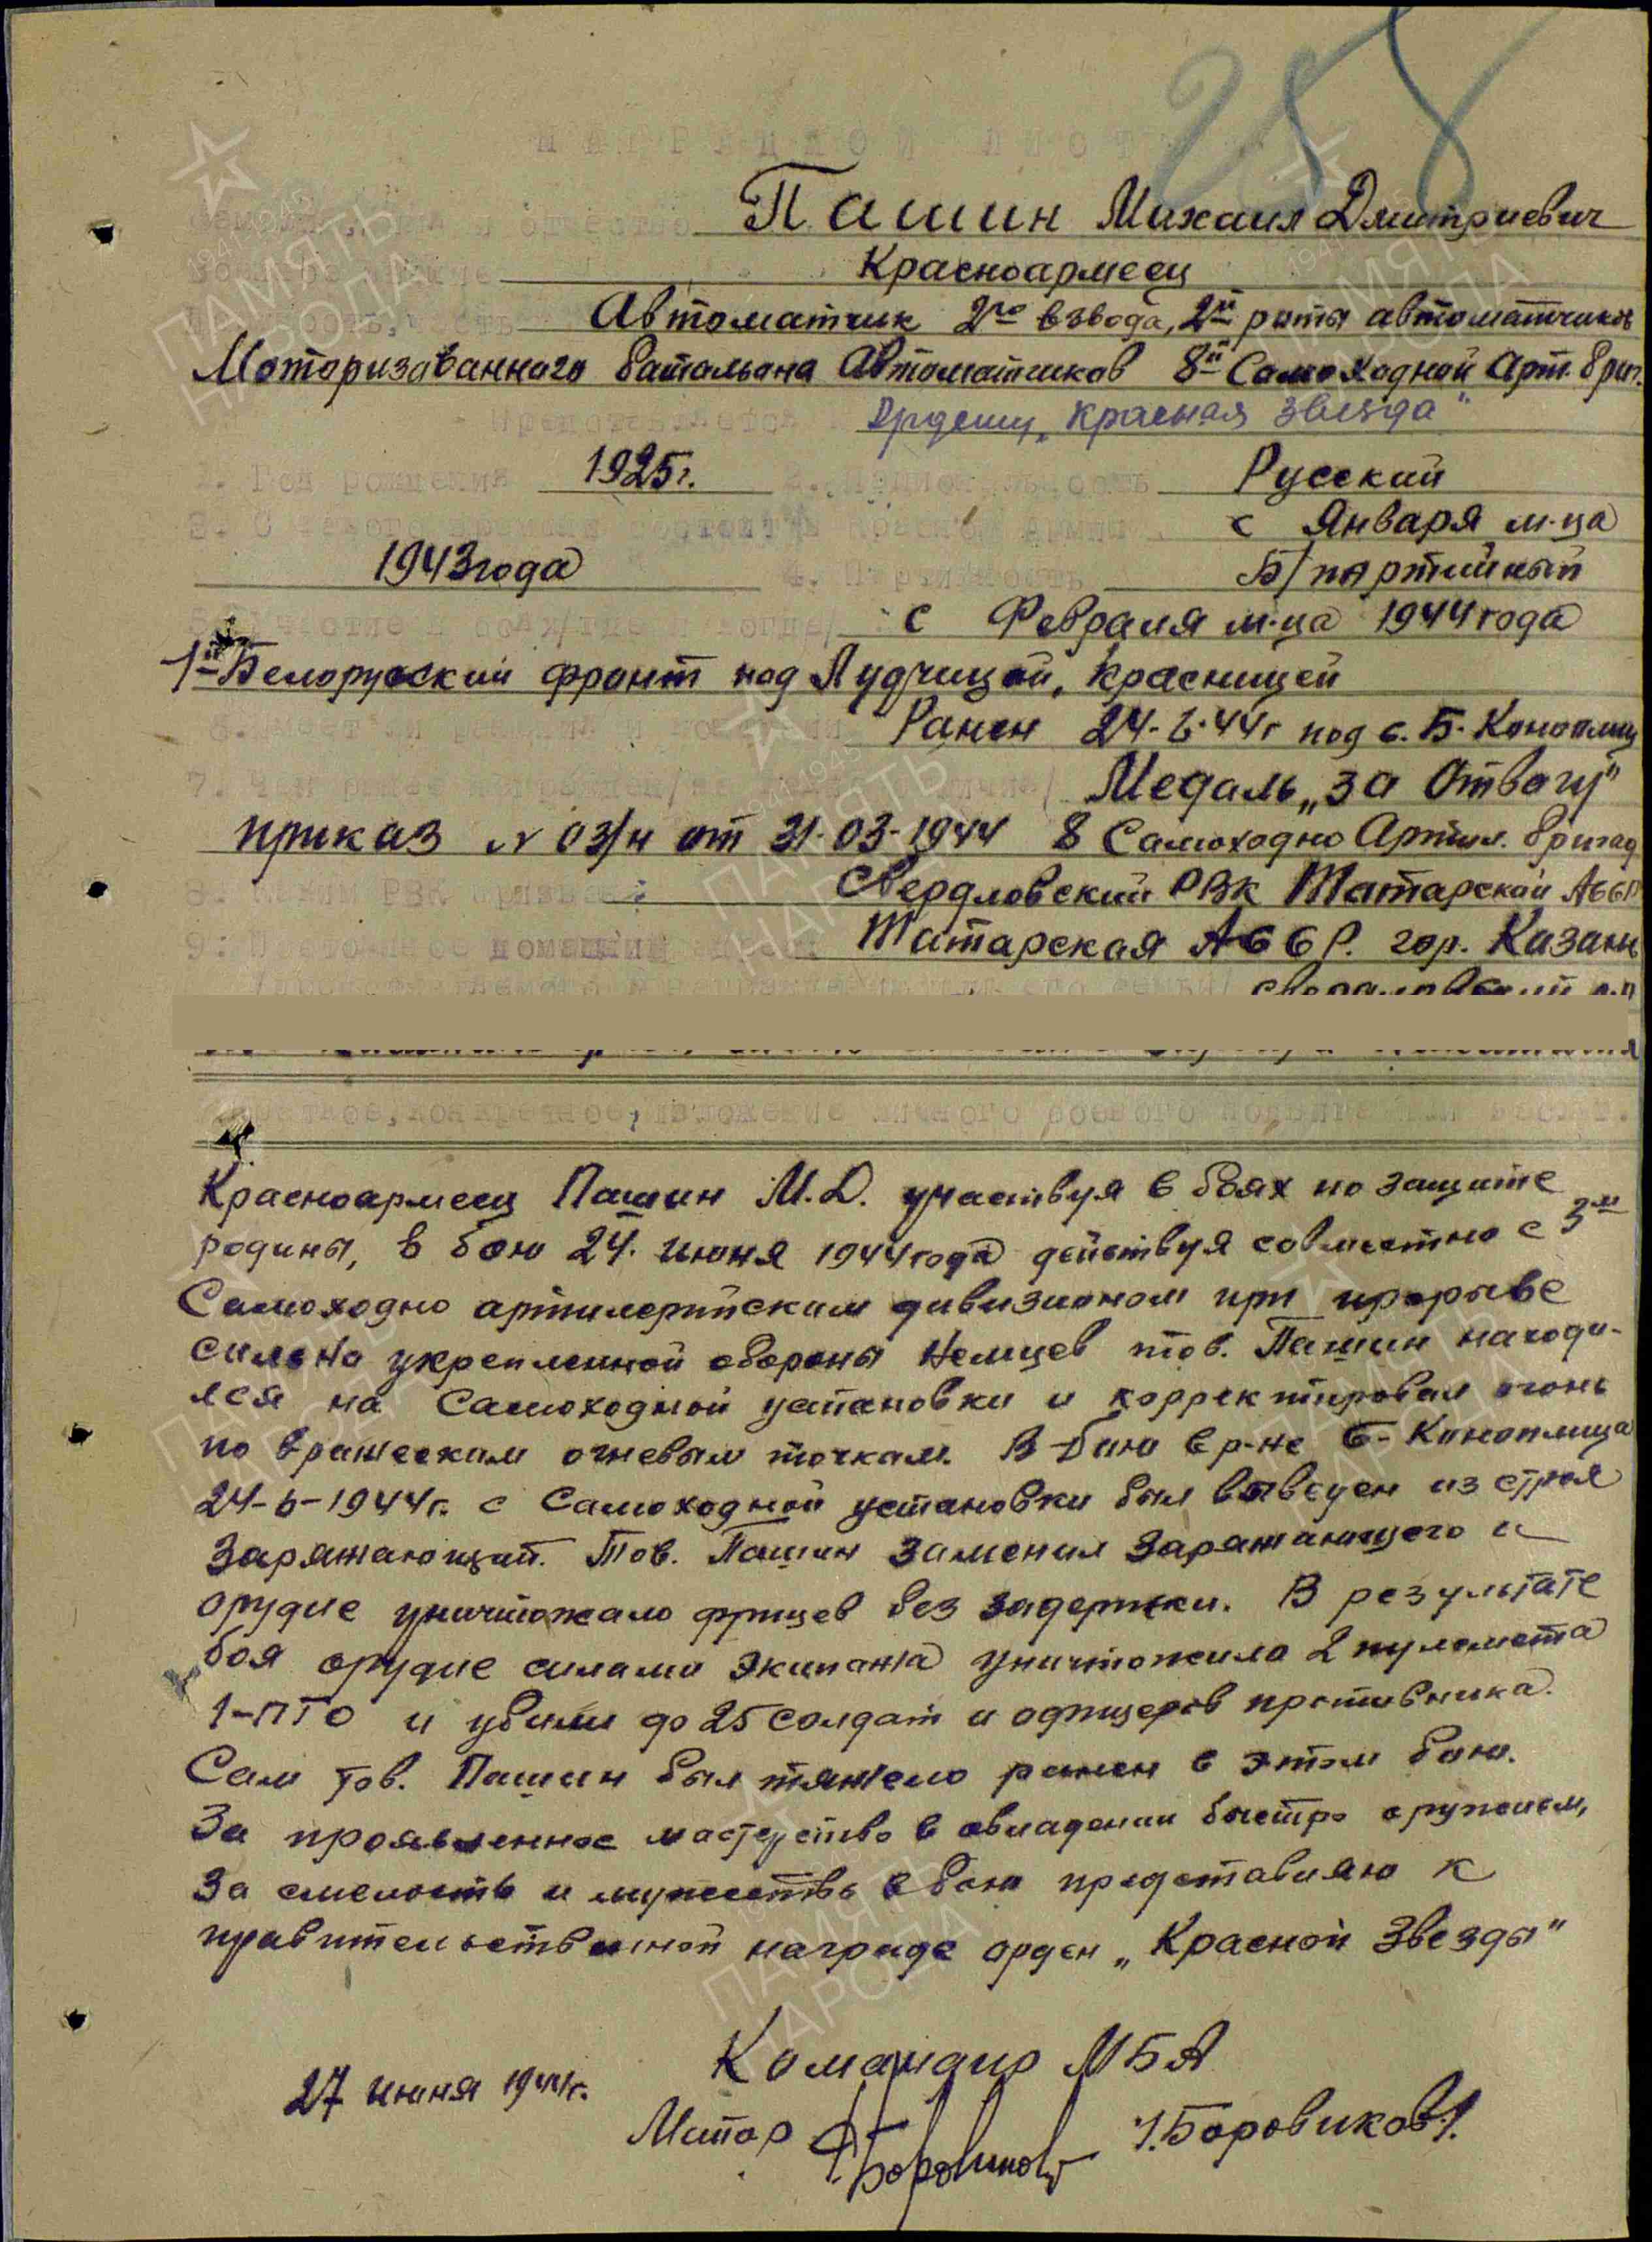 258
НАГРАДНОЙ ЛИСТ
Фамилия, имя и отчество Пашин Михаил Дмитриевич
Военное звание Красноармеец
Должность, часть Автоматчик 2го взвода, 2й роты автоматчиков
Моторизованного батальона Автоматчиков 8й Самоходной Арт. бриг.
Представляется к Ордену „Красная звезда"
1. Год рождения 1925г. 2. Национальность Русский
3. С какого времени состоит в Красной Армии с Января м-ца
1943 года 4. Партийность Б/партийный
5. Участие в боях /где и когда/ с Февраля м-ца 1944 года
1й Белоруский фронт под Лудчицой, Красницей
6. Имеет ли ранения и контузии Ранен 24-6-44г под с. Б. Коноплиц
7. Чем ранее награжден /за какие отличия/ Медаль „за Отвагу"
приказ № 03/н от 31-03-1944 8 Самоходно Артил. бригад
8. Каким РВК призван: Свердловский РВК Татарской АССР
9. Постоянное домашний адрес: Татарская АССР. гор. Казань
/представляемого к награждению или его семьи/ Свердловский
Краткое, конкретное, изложение личного боевого подвига или заслуг.
Красноармеец Пашин М.Д. участвуя в боях по защите
родины, в бою 24. июня 1944 года действуя совместно с 3м
Самоходно артилерийским дивизионом при прорыве
сильно укрепленной обороны Немцев тов. Пашин находи-
лся на Самоходной установки и корректировал огонь
по вражеским огневым точкам. В бою в р-не Б-Коноплица
24-6-1944г. с Самоходной установки был выведен из строя
Заряжающий. Тов. Пашин заменил Заряжающего и
орудие уничтожало фрицев без задержки. В результате
боя орудие силами экипажа уничтожило 2 пулемета
1-ПТО и убили до 25 солдат и офицеров противника.
Сам тов. Пашин был тяжело ранен в этом бою.
За проявленное мастерство в овладении быстро оружием,
За смелость и мужество в бою представляю к
правительственной награде орден „Красной Звезды"
Командир МБА
27 июня 1944г.
Маіор Боровиков /Боровиков/.
ПАМЯТЬ НАРОДА
1941-1945